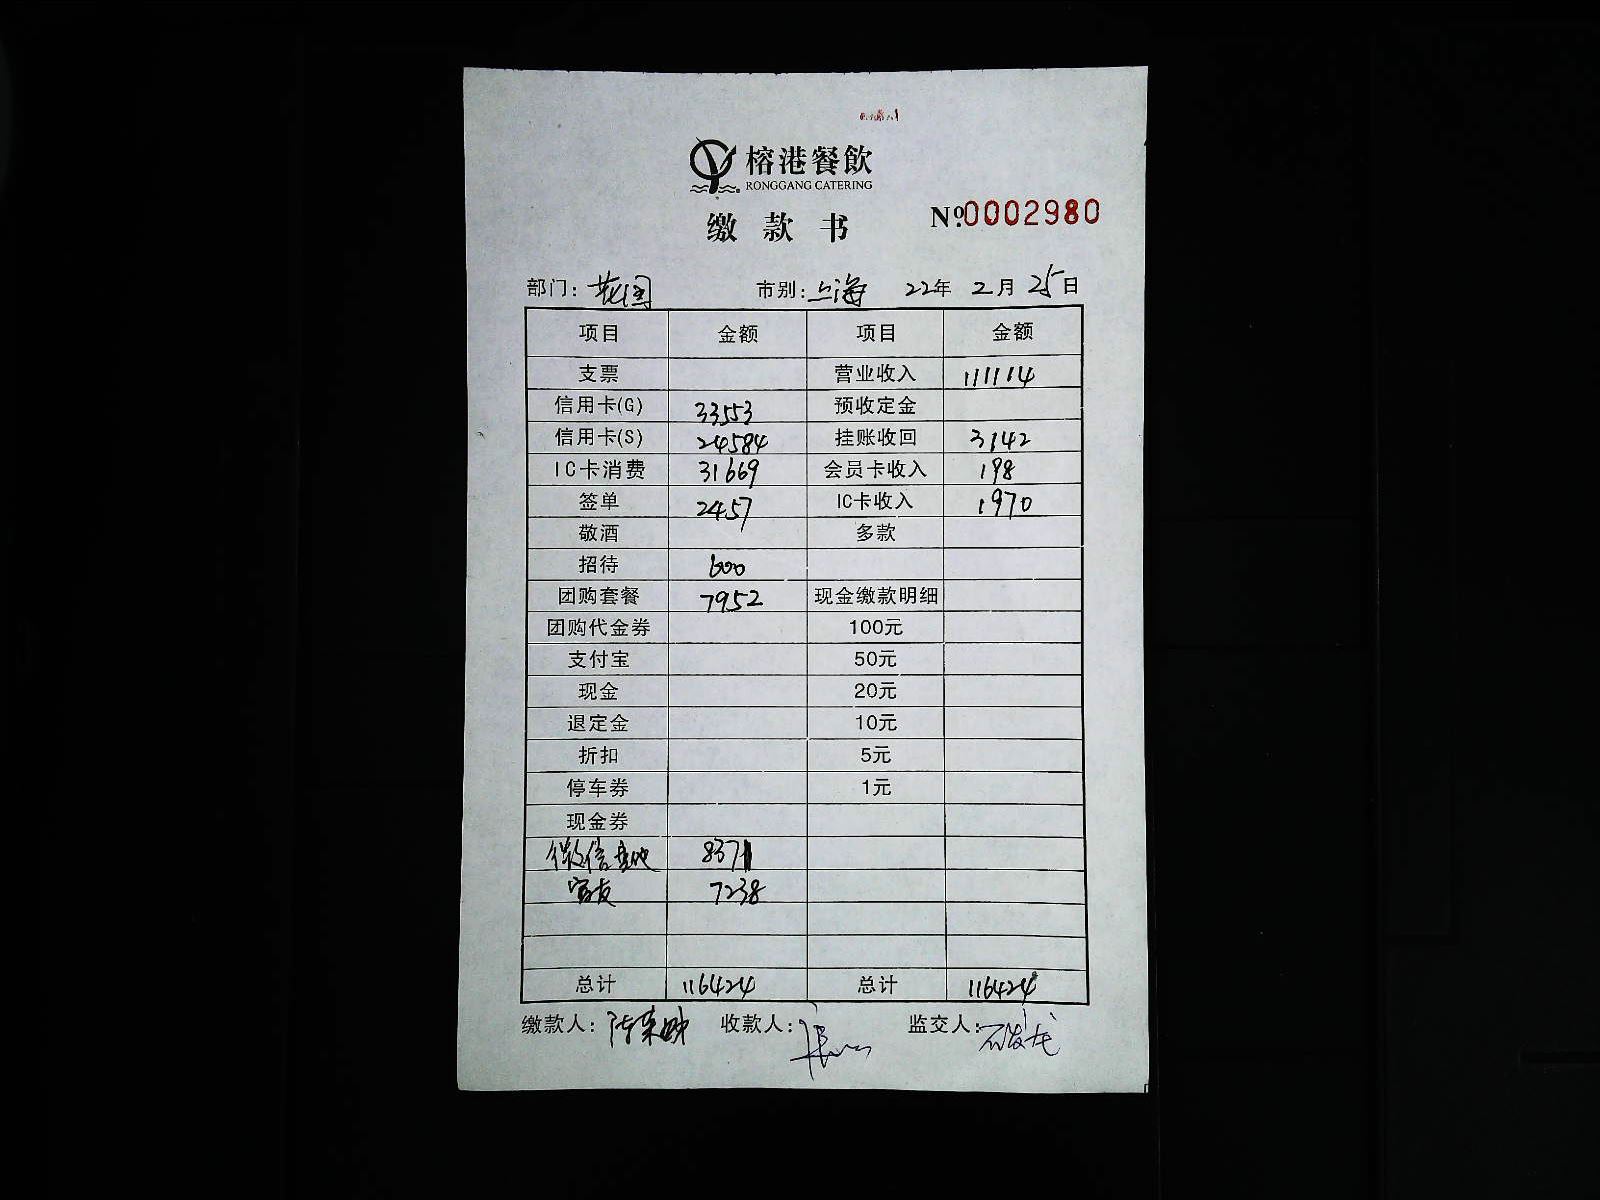 榕港餐飲
RONGGANG CATERING
缴款书
Nº.0002980
部门: 花园 市别: 上海 22年 2月 25日
项目 金额 项目 金额
支票 营业收入 111114
信用卡(G) 33553 预收定金
信用卡(S) 24584 挂账收回 3142
IC卡消费 31669 会员卡收入 198
签单 2457 IC卡收入 1970
敬酒 多款
招待 600
团购套餐 7952 现金缴款明细
团购代金券 100元
支付宝 50元
现金 20元
退定金 10元
折扣 5元
停车券 1元
现金券
微信 8371
7238
总计 116424 总计 116424
缴款人: 收款人: 监交人: